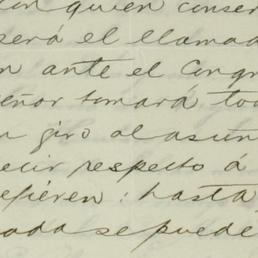 quien conser
será el llamad
n ante el Congr
eñor tomará to
n giro al asun
ecir respecto á
efieren: hasta
ada se puede